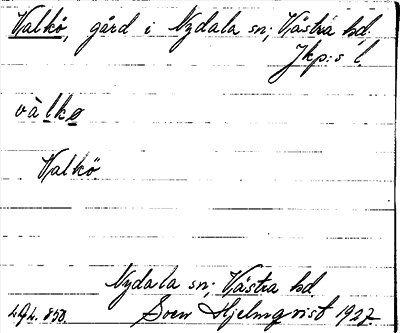 Valkö, gård i Nydala sn; Västra hd.
Jkp:s l.
vàlkø
Valkö
Nydala sn; Västra hd.
Sven Hjelmqvist 1927